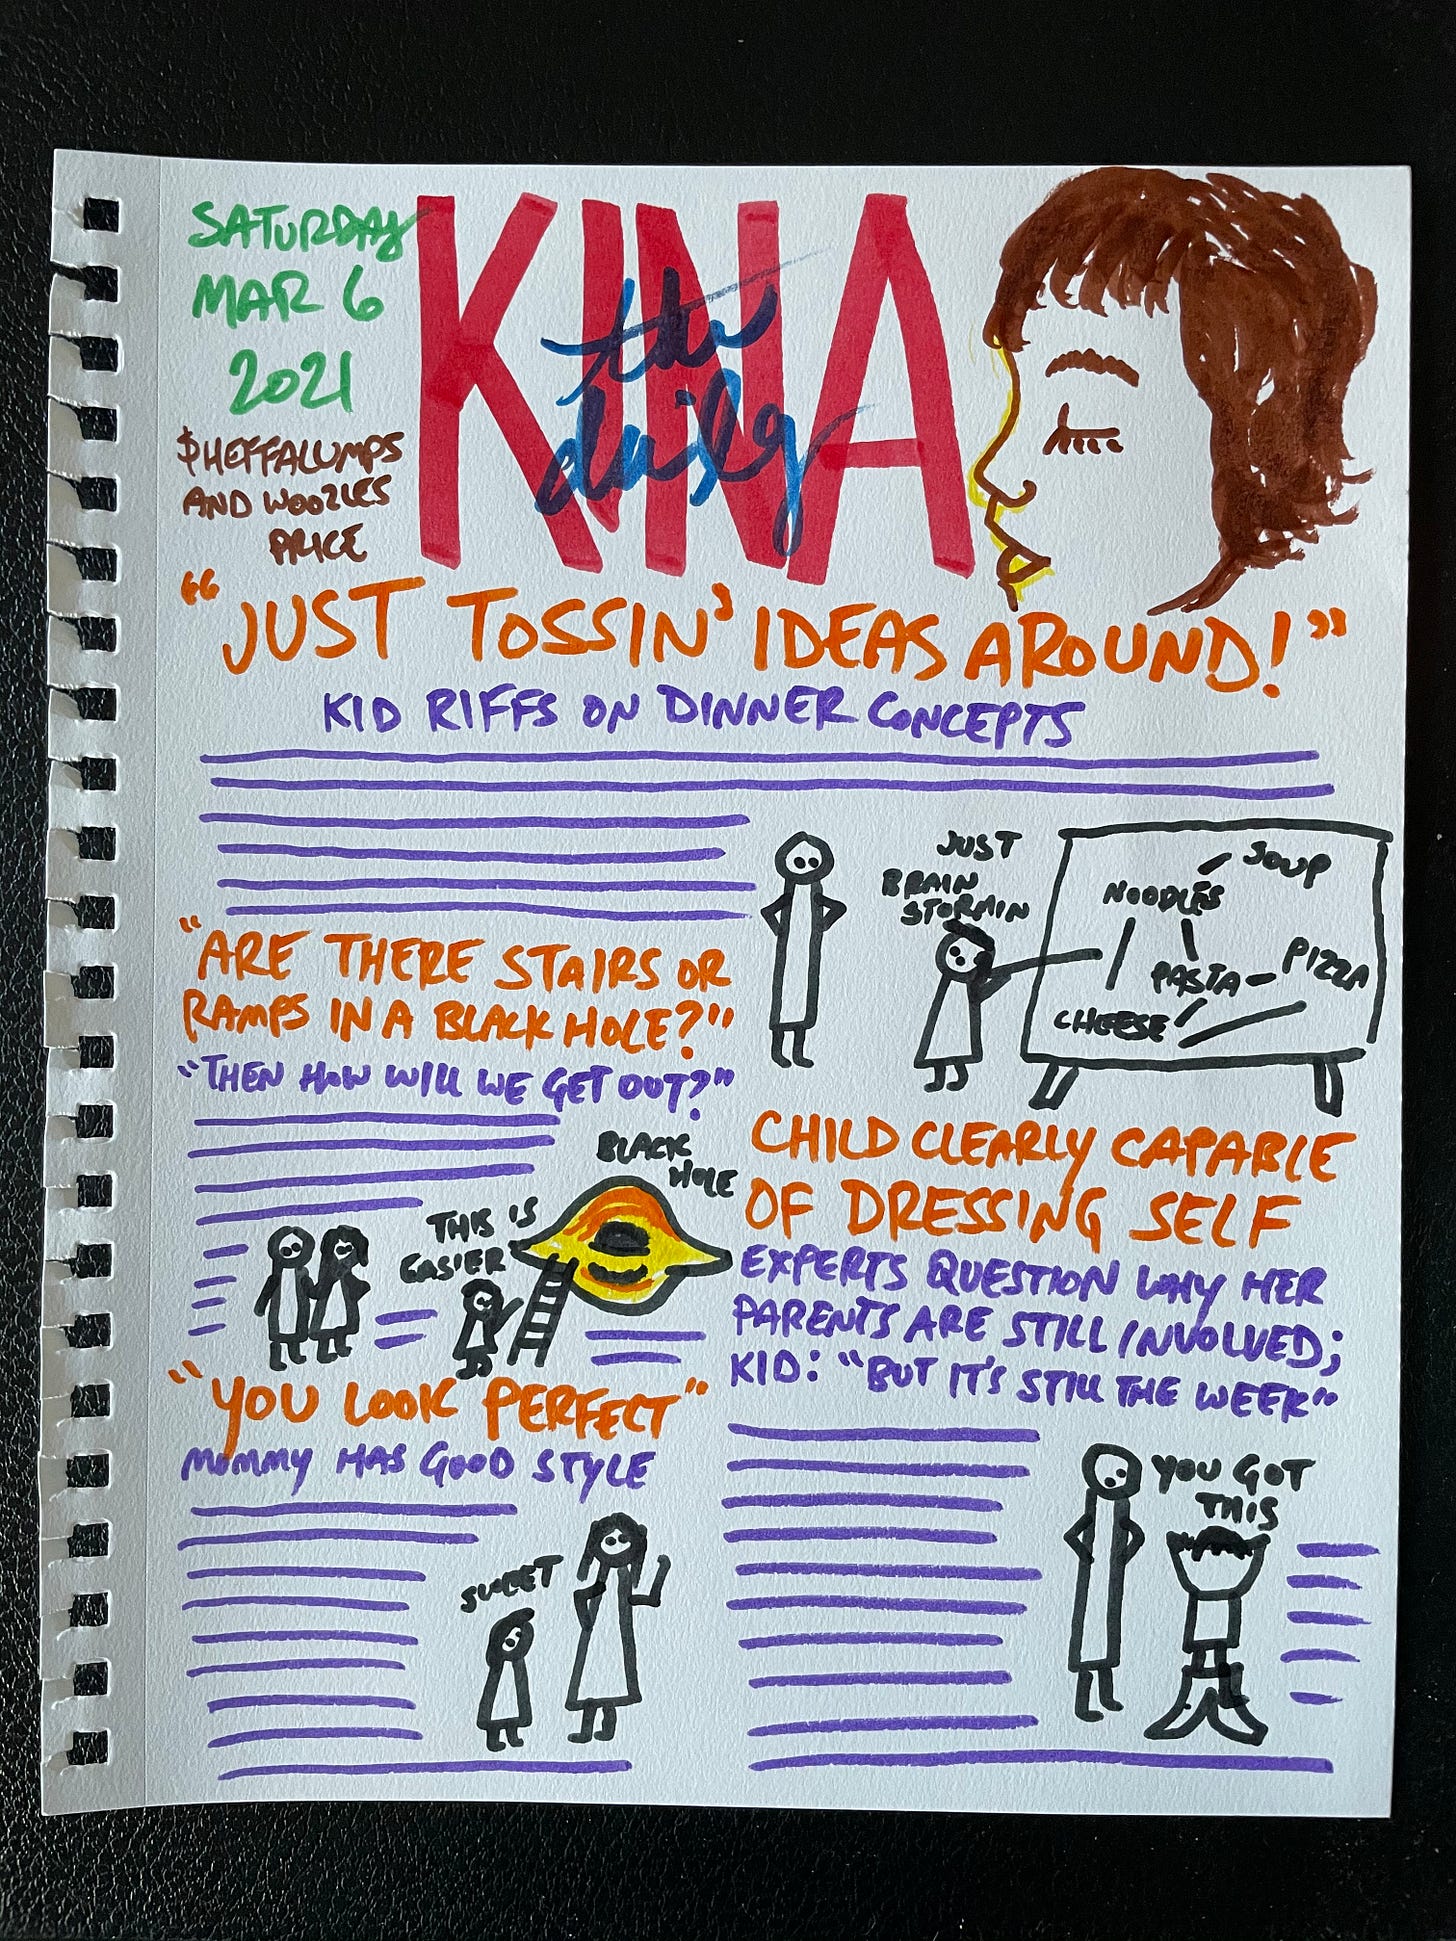 SATURDAY
MAR 6
2021
$HEFFALUMPS
AND WOOZLES
PRICE
KINA
the
daily
"JUST TOSSIN' IDEAS AROUND!"
KID RIFFS ON DINNER CONCEPTS
JUST
BRAIN
STORMIN
SOUP
NOODLES
PIZZA
PASTA
CHEESE
"ARE THERE STAIRS OR
RAMPS IN A BLACK HOLE?"
"THEN HOW WILL WE GET OUT?"
BLACK
HOLE
THIS IS
EASIER
CHILD CLEARLY CAPABLE
OF DRESSING SELF
EXPERTS QUESTION WHY HER
PARENTS ARE STILL INVOLVED;
KID: "BUT IT'S STILL THE WEEK"
YOU GOT
THIS
"YOU LOOK PERFECT"
MOMMY HAS GOOD STYLE